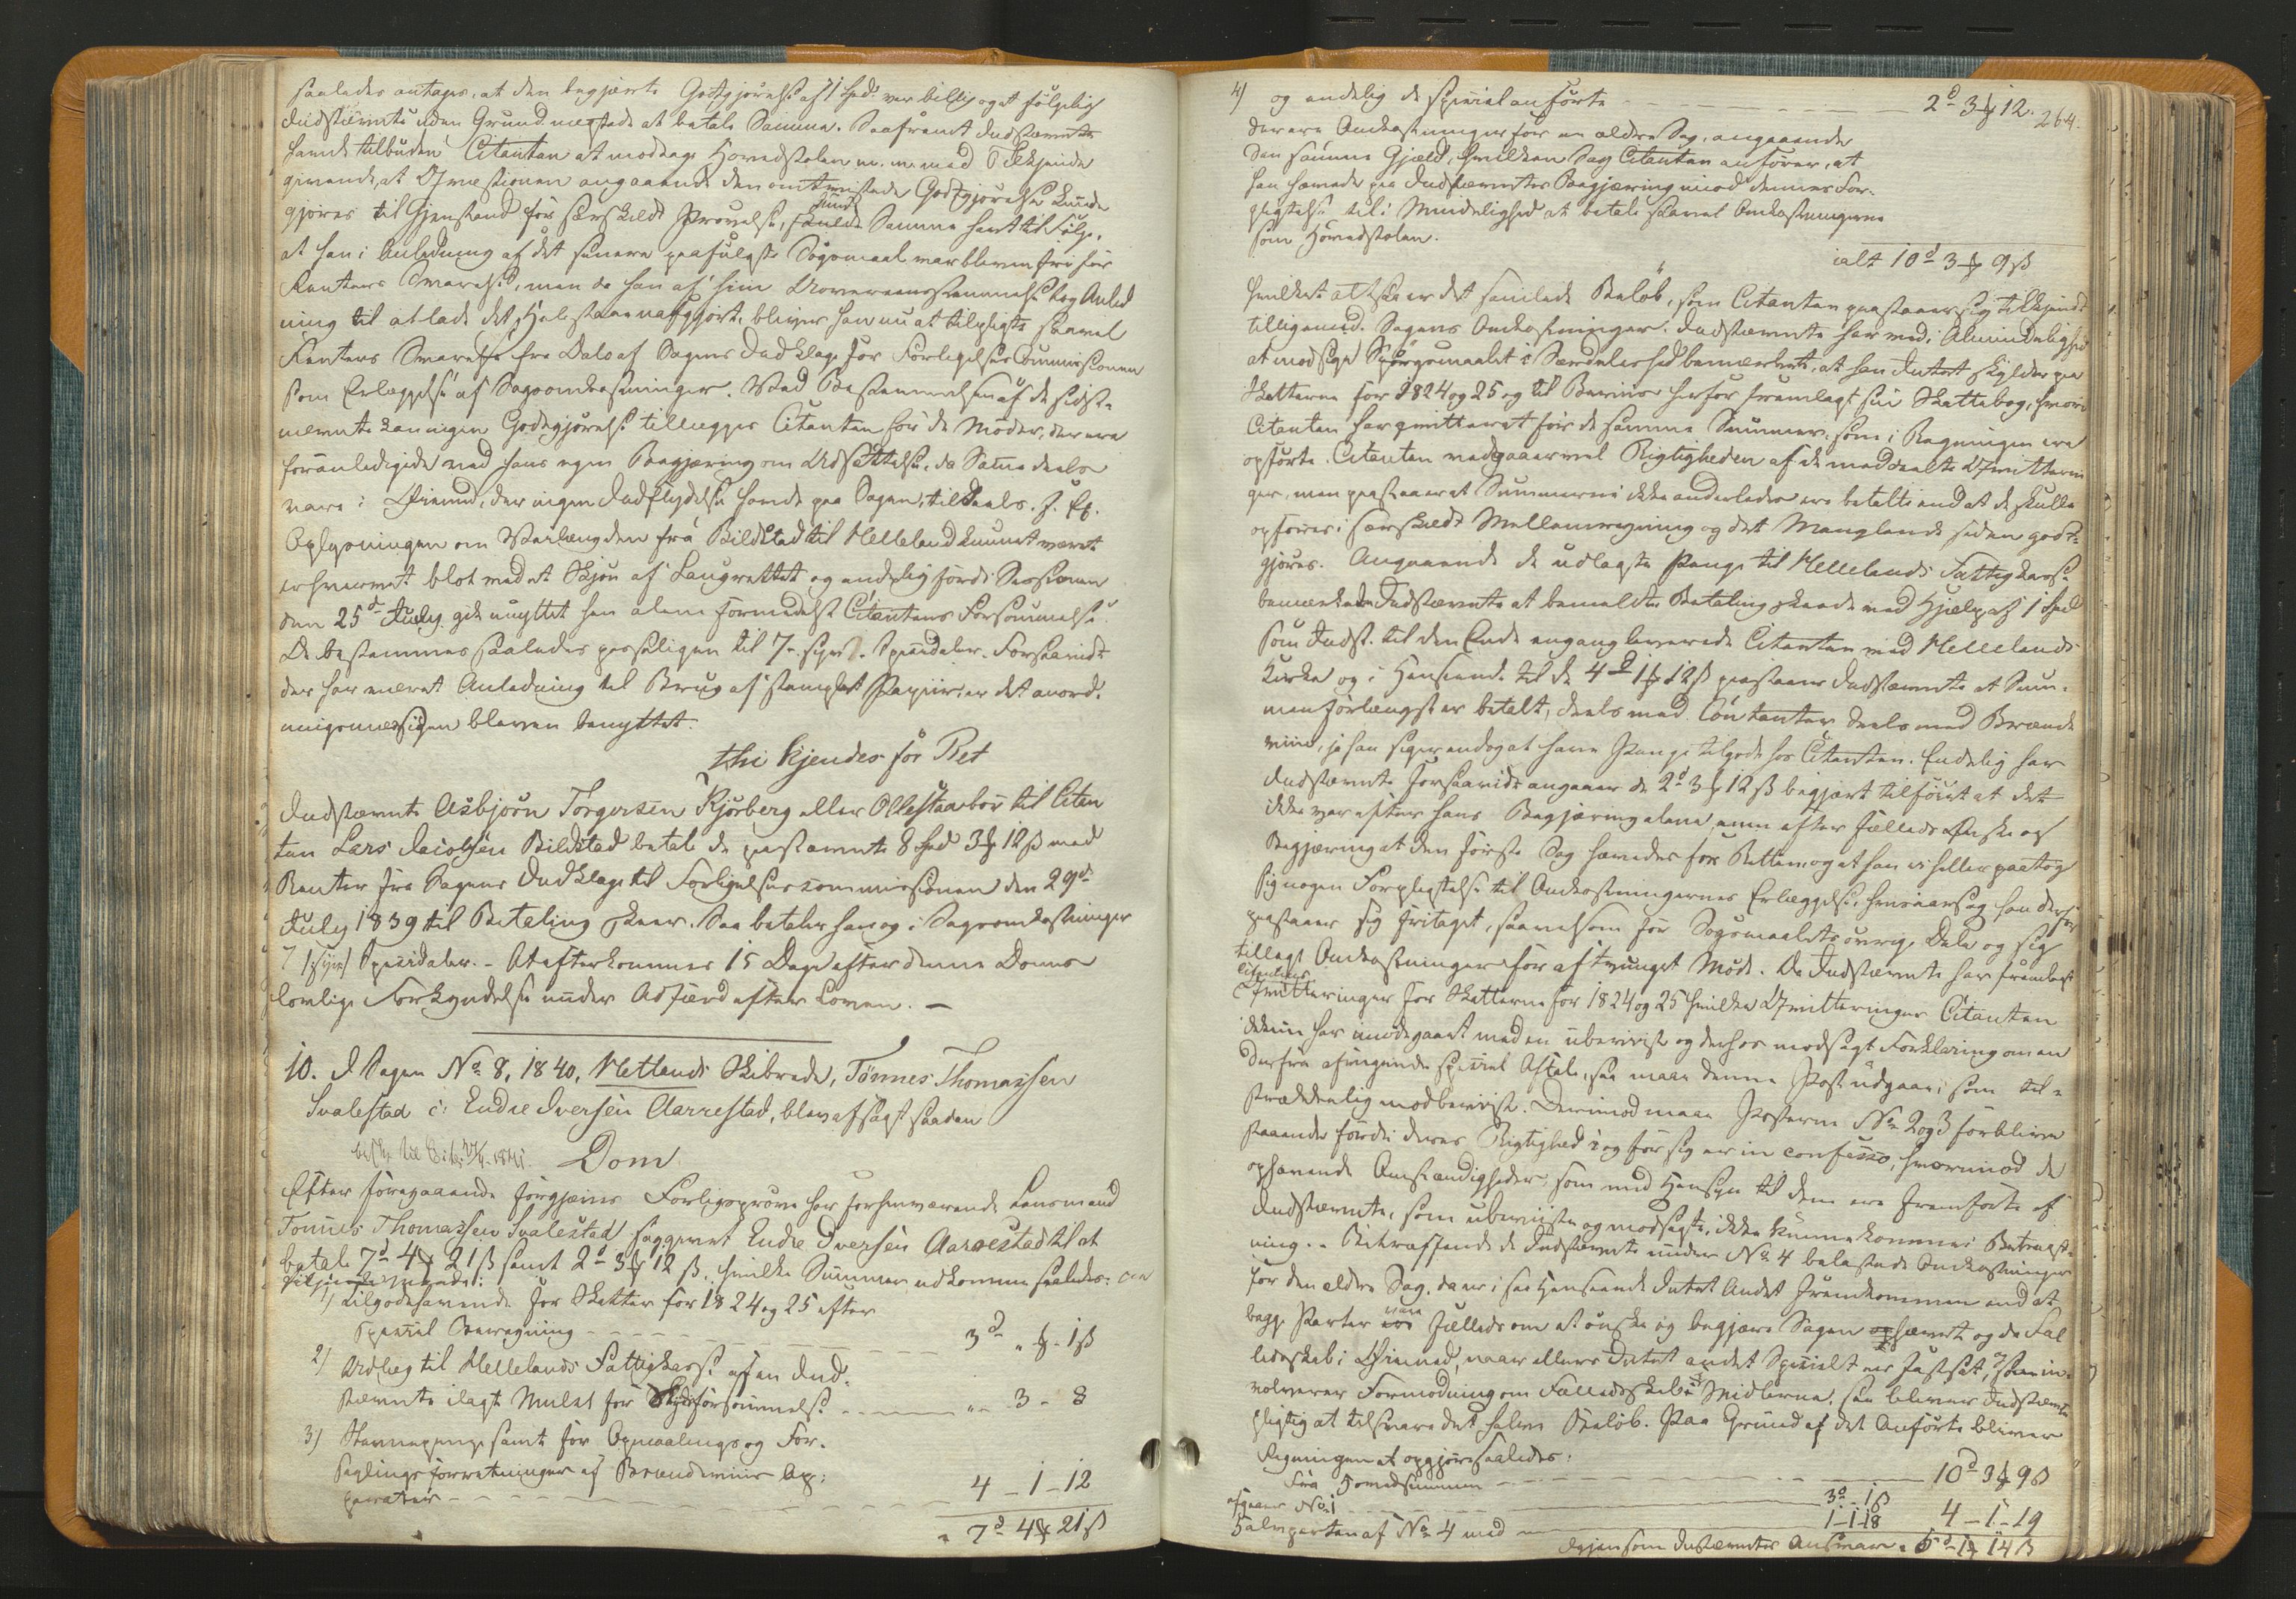 saaledes antages, at den begjærte Godtgjørelse af 1 Spd. var billig og at følgelig
Indstævnte uden Grund negtede at betale Samme. Saafremt Indstævnte
havde tilbuden Citanten at modtage Hovedstolen m. m. med Tilkjende
givende, at Qvæstionen angaaende den omtvistede Godtgjørelse kunde
gjøres til Gjenstand for særskildt Prøvelse, skulde Samme havt til Følge,
at han i Anledning af det senere paafulgte Søgsmaal var bleven fri for
Renters Svarelse, men da han af hiin Uovereensstemmelse tog Anled
ning til at lade det Hele staae uafgjort, bliver han nu at tilpligte saavel
Renters Svarelse fra Dato af Sagens Indklage for Forligelses Commissionen
som Erlæggelse af Sagsomkostninger. Ved Bestemmelsen af de sidst-
nævnte kan ingen Godtgjørelse tillægges Citanten for de Møder, der ere
foranledigede ved hans egen Begjæring om Udsættelse, da Samme deels
vare i Øiemed, der ingen Indflydelse havde paa Sagen, tildeels f. Ex.
Oplysningen om Veilængden fra Bildstad til Helleland kunnet været
erhvervet blot ved et Skjøn af Laugrettet og endelig fordi Sessionen
den 25de July gik unyttet hen alene formedelst Citantens Forsømmelse.
De bestemmes saaledes passeligen til 7 - syv - Speciedaler. Forsaavidt
der har været Anledning til Brug af stemplet Papiir, er det anord-
ningsmæssigen bleven benyttet.
thi kjendes for Ret
Indstævnte Asbjørn Torgersen Kjørberg eller Ollestad bør til Citan
ten Lars Jacobsen Bildstad betale de paastævnte 8 Spd 3 ₰ 12 ß med
Renter fra Sagens Indklage til Forligelsescommissionen den 29de
July 1839 til Betaling skeer. Saa betaler han og i Sagsomkostninger
7 (syv) Speciedaler. - At efterkommes 15 Dage efter denne Doms
lovlige Forkyndelse under Adfærd efter Loven. -
10. I Sagen No 8, 1840, Hetlands Skibrede, Tønnes Thomassen
Svalestad c: Endre Iversen Aarrestad, blev afsagt saadan
Dom
Efter foregaaende forgjæves Forligsprøve har forhenværende Lensmand
Tønnes Thomassen Svalestad saggivet Endre Iversen Aarrestad til at
betale 7d 4 ₰ 21 ß samt 2d 3 ₰ 12 ß, hvilke Summer udkomme saaledes:
1) tilgodehavende for Skatter for 1824 og 25 efter
special Beregning - - - 3d " ₰ - 1 ß
2) Udlæg til Hellelands Fattigkasse af en Ind-
stævnte ilagt Mulct for Skydsforsømmelse - - - " - 3 - 8
3) Stævnepenge samt for Opmaalings og For-
seglingsforretninger af Brændeviins Ap-
parater - - - 4 - 1 - 12
7d 4 ₰ 21 ß
264.
4) og endelig de specialanførte - - - 2d 3 ₰ 12.
der ere Omkostninger for en ældre Sag, angaaende
den samme Gjæld, hvilken Sag Citanten anfører, at
han hævede paa Indstævntes Begjæring imod dennes For-
pligtelse til i Mindelighed at betale saavel Omkostningerne
som Hovedstolen.
ialt 10d 3 ₰ 9 ß
hvilket altsaa er det samlede Beløb, som Citanten paastaaer sig tilkjendt
tilligemed Sagens Omkostninger. Indstævnte har ved i Almindelighed
at modsige Spørgsmaalet i Særdeleshed bemærket, at han Intet skylder paa
Skatterne for 1824 og 25 og til Beviis herfor fremlagt sin Skattebog, hvori
Citanten har qvitteret for de samme Summer, som i Regningen ere
opførte. Citanten vedgaaer vel Rigtigheden af de meddeelte Qvitterin
ger, men paastaaer at Summerne ikke anderledes ere betalte end at de skulle
opføres i særskildt Mellemregning og det Manglende siden godt-
gjøres. Angaaende de udlagte Penge til Hellelands Fattigkasse
bemærkede Indstævnte at bemeldte Betaling skeede ved Hjelp af 1 Spd
som Indst. til den Ende engang leverede Citanten ved Hellelands
Kirke og i Henseende til de 4d 1 ₰ 12 ß paastaaer Indstævnte at Sum-
men forlængst er betalt, deels med Contanter deels med Brænde
viin, ja han siger endog at have Penge tilgode hos Citanten. Endelig har
Indstævnte forsaavidt angaaer de 2d 3 ₰ 12 ß begjært tilført at det
ikke var efter hans Begjæring alene, men efter fælleds Ønske og
Begjæring at den første Sag hævedes for Retten, og at han ei heller paatog
sig nogen Forpligtelse til Omkostningernes Erlæggelse, hvis Aarsag han derfor
paastaaer sig fritaget, saavelsom for Søgsmaalets øvrige Dele og sig
tillagt Omkostninger for aftvunget Møde. Da Indstævnte har fremlagt
Citantens
Qvitteringer for Skatterne for 1824 og 25 hvilke Qvitteringer Citanten
ikkun har imødegaaet med en ubeviist og derhos modsagt Forklaring om en
derfra afvigende special Aftale, saa maae denne Post udgaae, som til-
strækkelig modbeviist. Derimod maae Posterne No 2 og 3 forblive
staaende fordi deres Rigtighed i og for sig er in confesso, hvorimod de
ophævende Omstændigheder, som med Hensyn til dem ere fremførte af
Indstævnte, som ubeviiste og modsagte, ikke kunne komme i Betragt-
ning. - Betræffende de Indstævnte under No 4 belastede Omkostninger
for den ældre Sag, da er i saa Henseende Intet Andet fremkommen end at
begge Parter vare fælleds om at ønske og begjære Sagen hævet og da Fæl
ledsskab i Øiemed, naar ellers Intet andet Specielt er fastsat, og saa in-
volverer Formodning om Fælledsskab i Midlerne, saa bliver Indstævnte
pligtig at tilsvare det halve Beløb. Paa Grund af det Anførte bliver
Regningen at opgjøre saaledes:
fra Hovedsummen - - - 10d 3 ₰ 9 ß
afgaaer No 1 - - - 3d - 1 ß
Halvparten af No 4 med - - - 1-1-18 4 - 1 - 19
Igjen som Indstævntes Ansvar. 6d 1 ₰ 14 ß